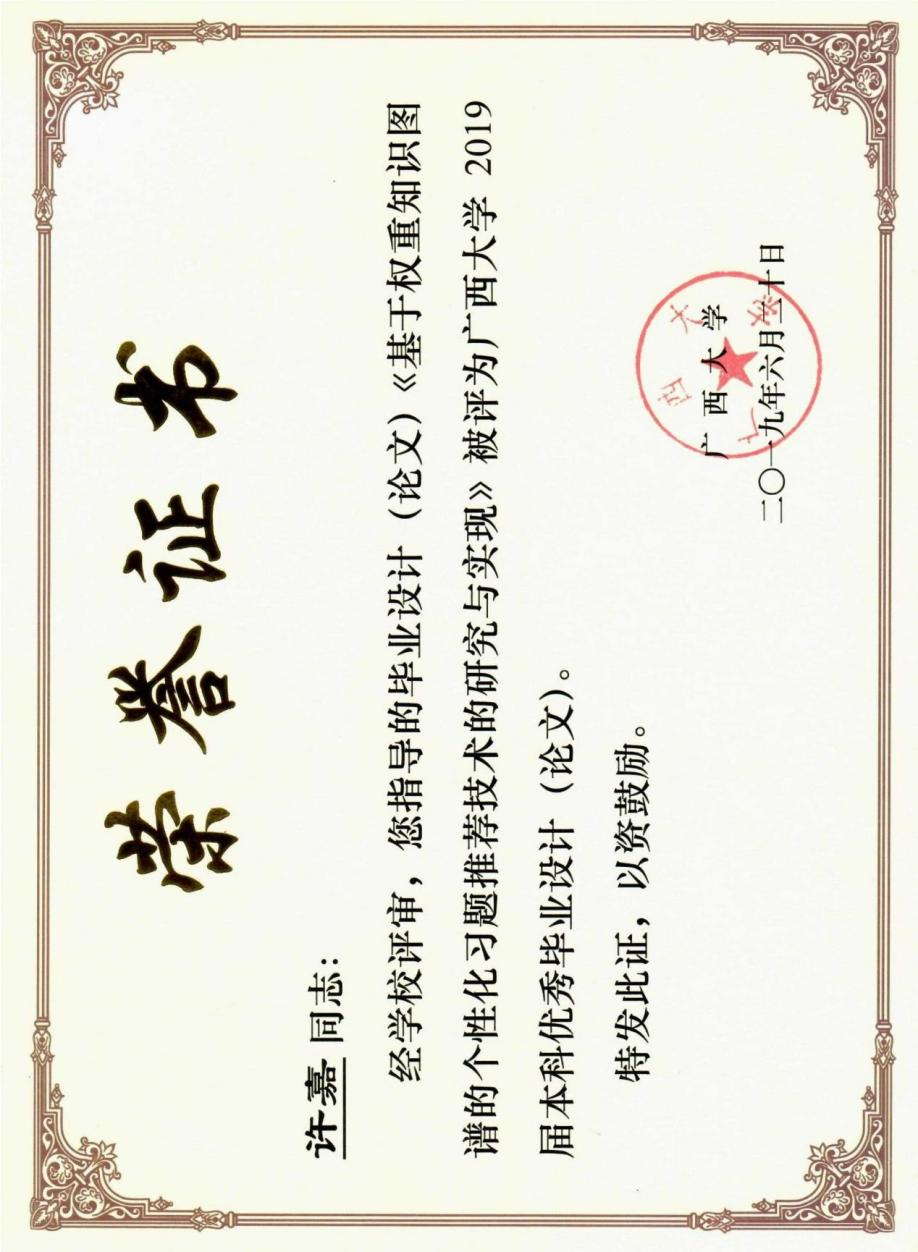 荣誉证书
许嘉 同志：
经学校评审，您指导的毕业设计（论文）《基于权重知识图
谱的个性化习题推荐技术的研究与实现》被评为广西大学 2019
届本科优秀毕业设计（论文）。
特发此证，以资鼓励。
广西大学
广西大学
二〇一九年六月三十日